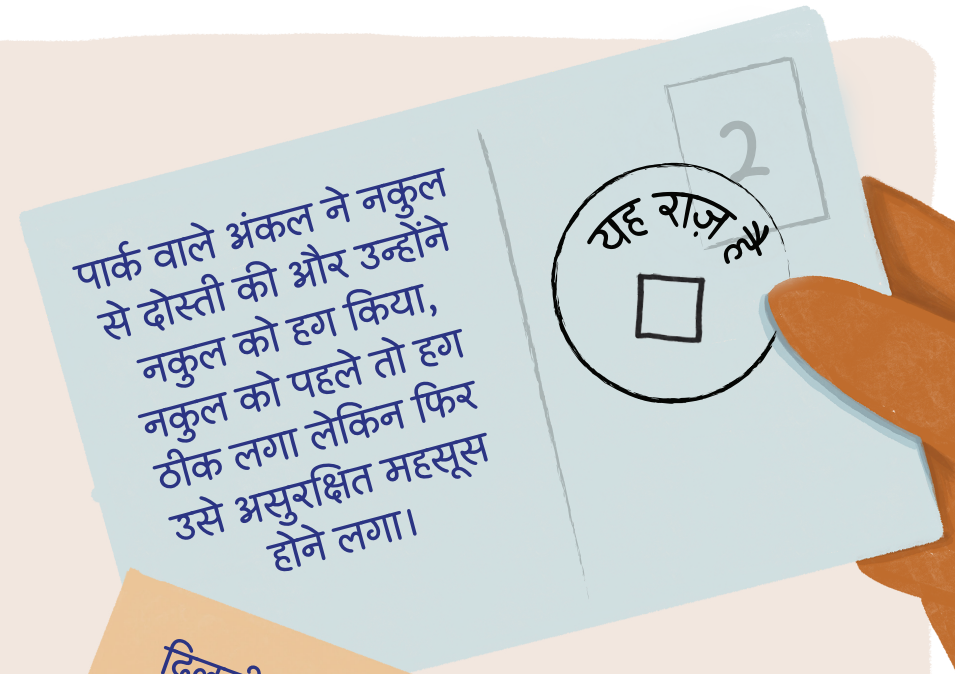 पार्क वाले अंकल ने नकुल
से दोस्ती की और उन्होंने
नकुल को हग किया,
नकुल को पहले तो हग
ठीक लगा लेकिन फिर
उसे असुरक्षित महसूस
होने लगा।
2
यह राज़